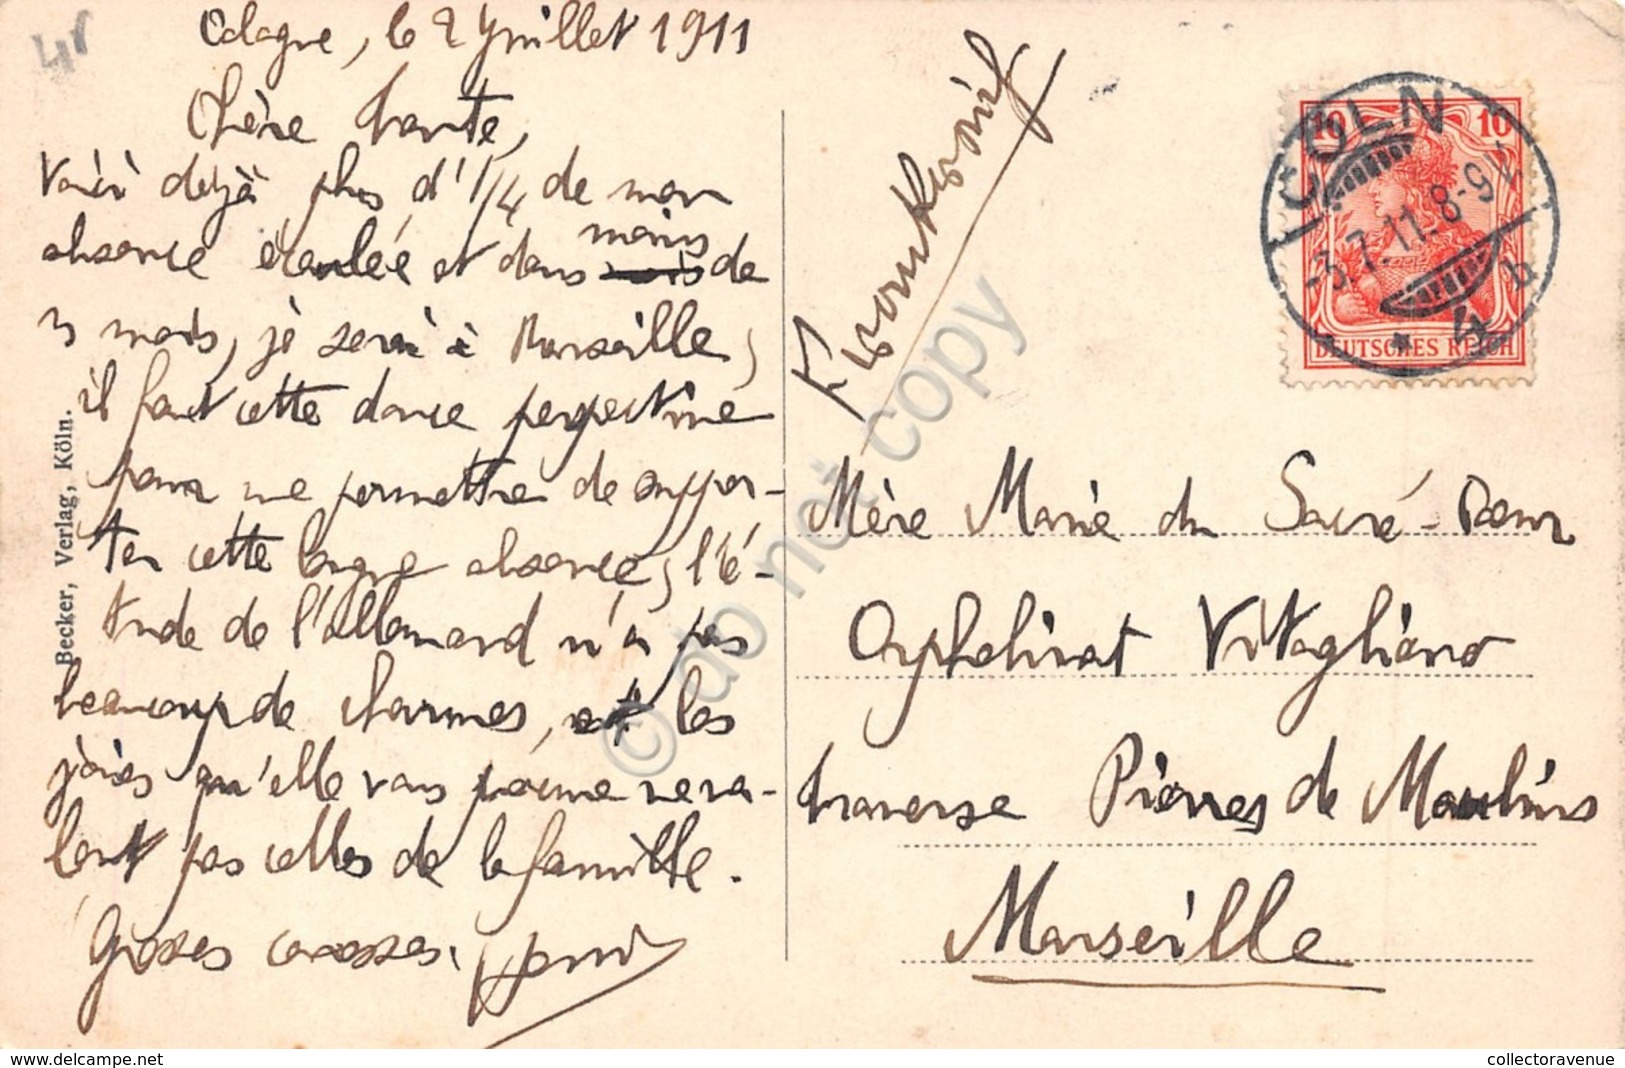 Cologne, le 2 Juillet 1911
Chère tante,
Voici déjà plus d'1/4 de mon
absence écoulée et dans moins de
3 mois, je serai à Marseille,
il faut cette douce perspective
pour me permettre de suppor-
ter cette longue absence, l'é-
tude de l'allemand n'a pas
beaucoup de charmes, et les
joies qu'elle vous procure ne va-
lent pas celles de la famille.
Grosses caresses.
Becker, Verlag, Köln.
Frankreich
Mère Marie du Sacré-Coeur
Orphelinat Vitagliano
traverse Pierres de Moulins
Marseille
10 10
DEUTSCHES REICH
CÖLN
-3.7.11. 8-9V.
* 4 b
© do not copy
collectoravenue.com